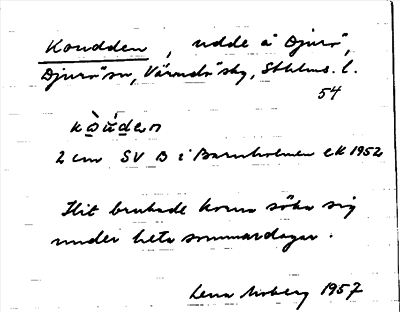 Koudden, udde å Djurö,
Djurö sn, Värmdö skg, Sthlms. l.
54
kòu̇́den
2 cm SV B i Barnholmen ek 1952
Hit brukade korna söka sig
under heta sommardagar.
Lena Moberg 1957